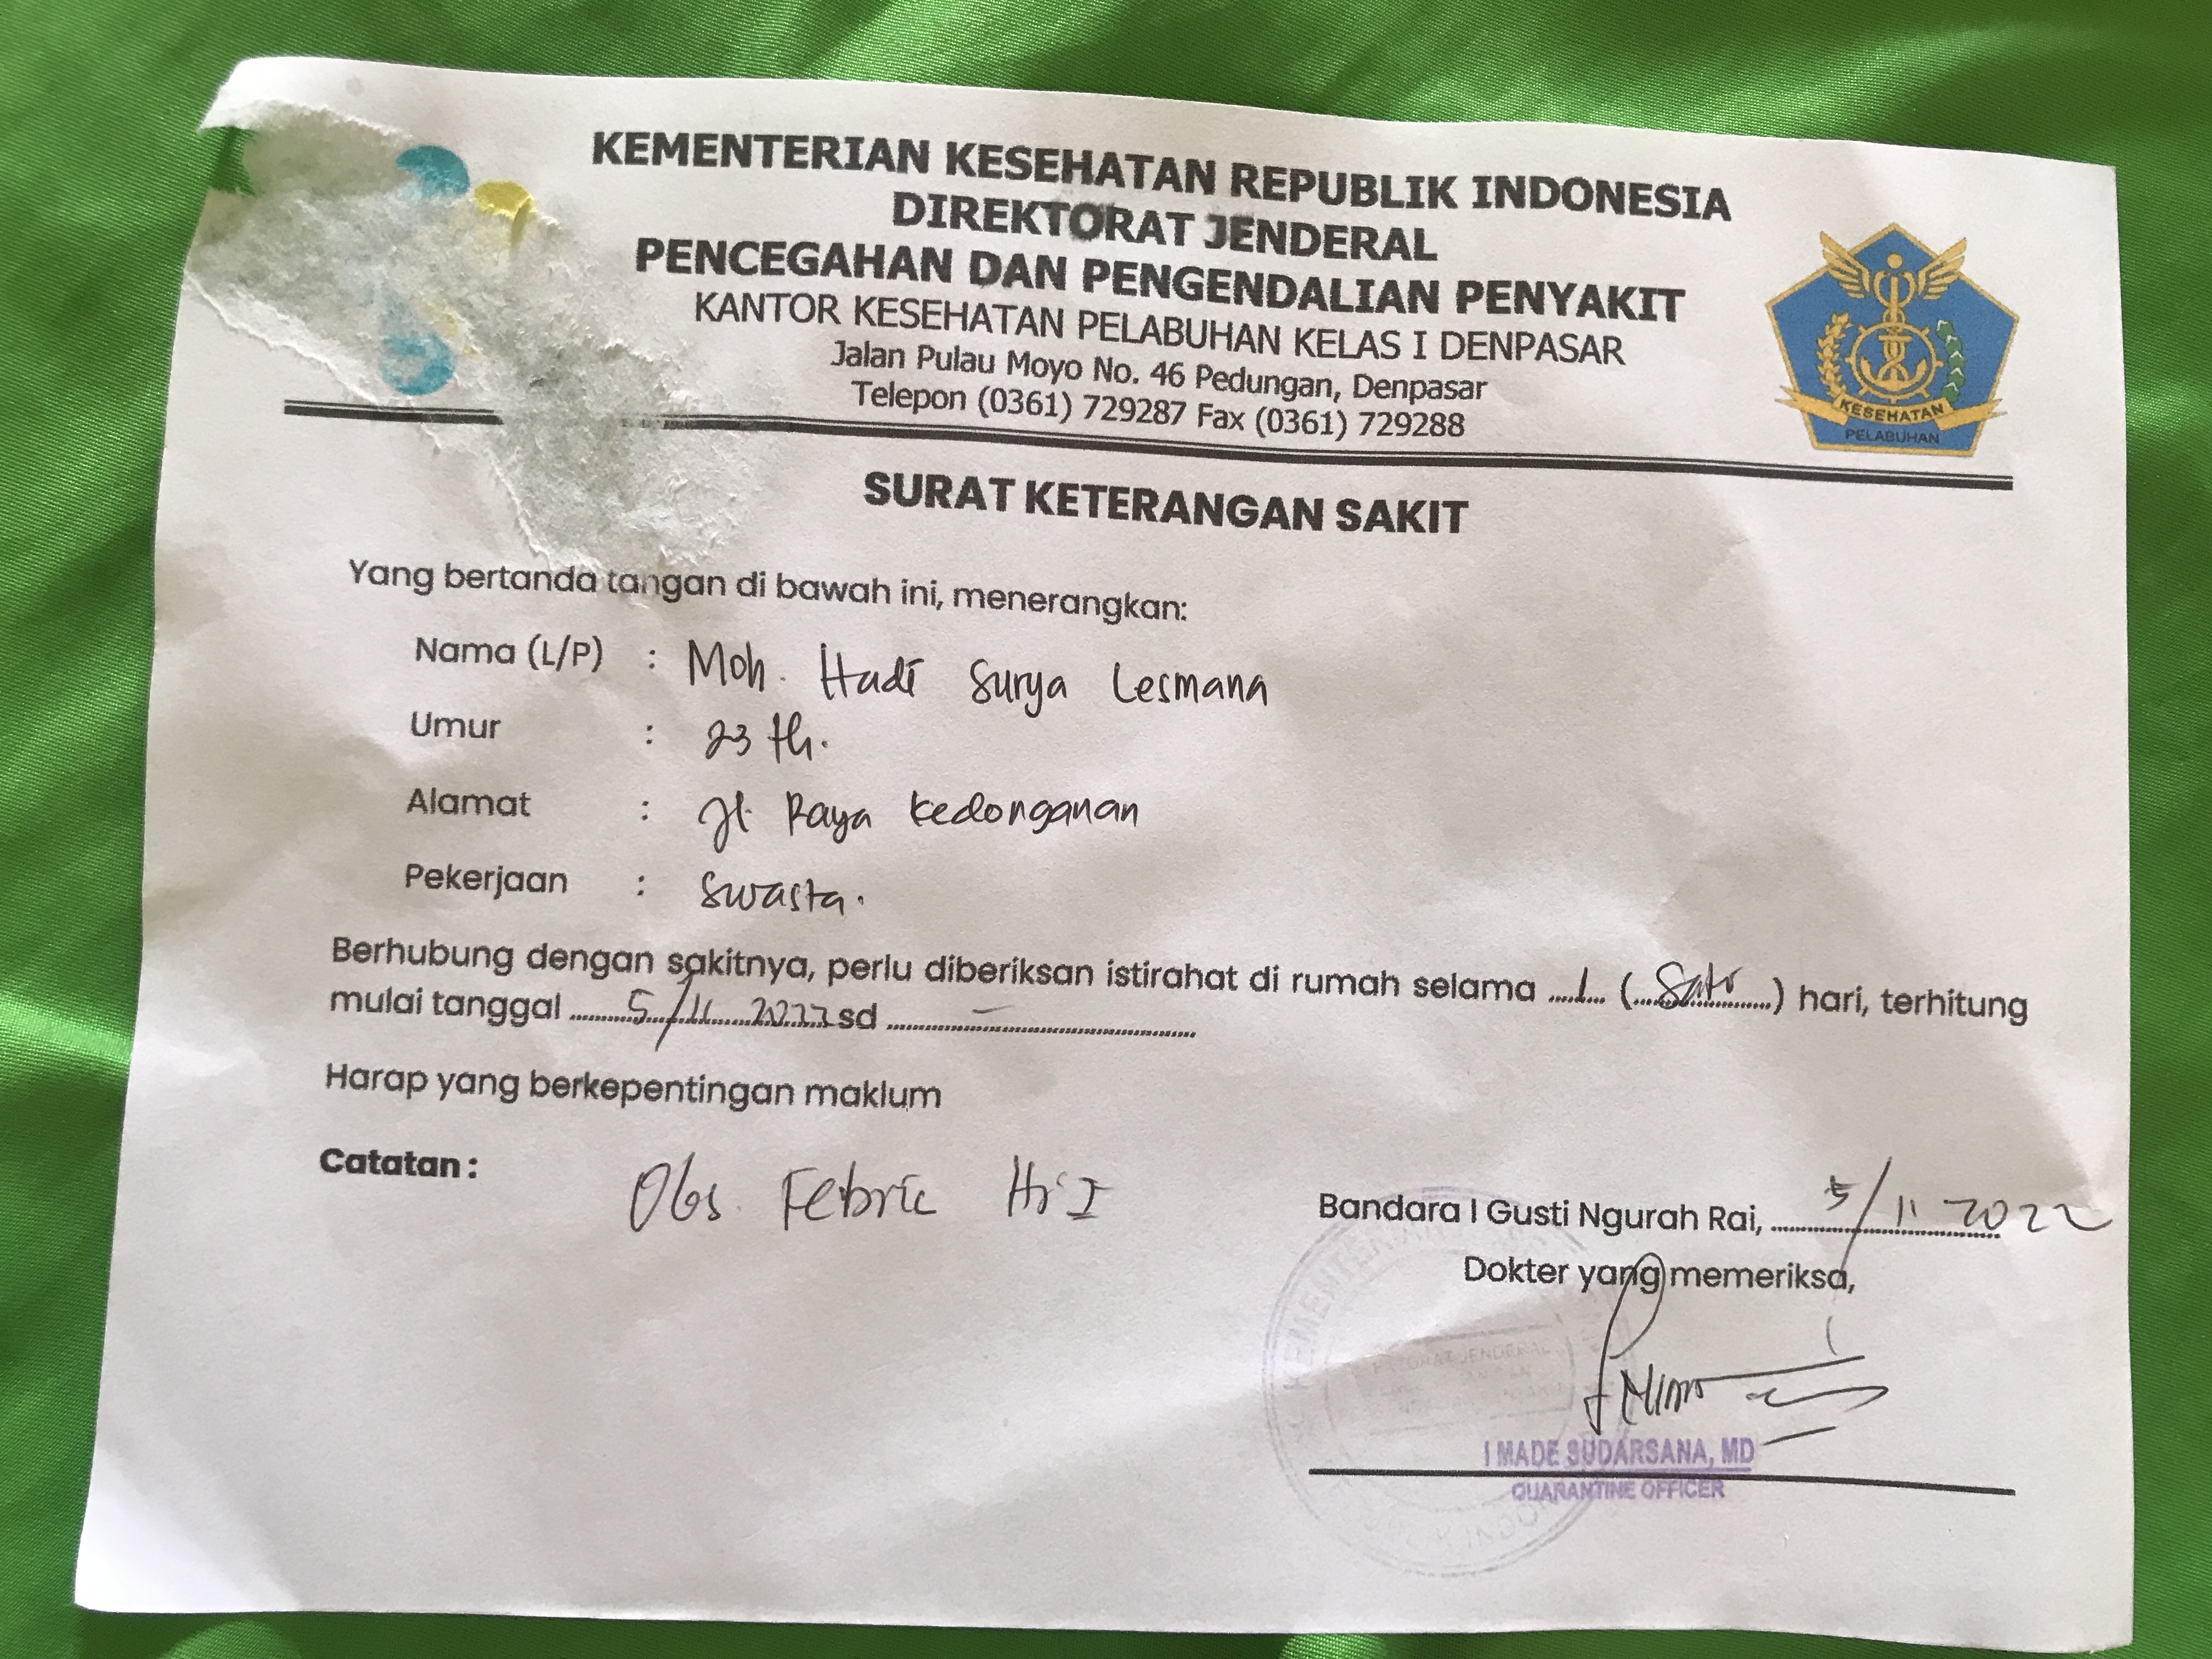 KEMENTERIAN KESEHATAN REPUBLIK INDONESIA
DIREKTORAT JENDERAL
PENCEGAHAN DAN PENGENDALIAN PENYAKIT
KANTOR KESEHATAN PELABUHAN KELAS I DENPASAR
Jalan Pulau Moyo No. 46 Pedungan, Denpasar
Telepon (0361) 729287 Fax (0361) 729288
KESEHATAN
PELABUHAN
SURAT KETERANGAN SAKIT
Yang bertanda tangan di bawah ini, menerangkan:
Nama (L/P) : Moh. Hadi Surya Lesmana
Umur : 23 th.
Alamat : Jl. Raya Kedonganan
Pekerjaan : Swasta.
Berhubung dengan sakitnya, perlu diberiksan istirahat di rumah selama ...1... (...Satu...) hari, terhitung
mulai tanggal ...5/11 2022 sd ...-...
Harap yang berkepentingan maklum
Catatan :
Obs. Febric H.I
Bandara I Gusti Ngurah Rai, 5/11-2022
Dokter yang memeriksa,
I MADE SUDARSANA, MD
QUARANTINE OFFICER